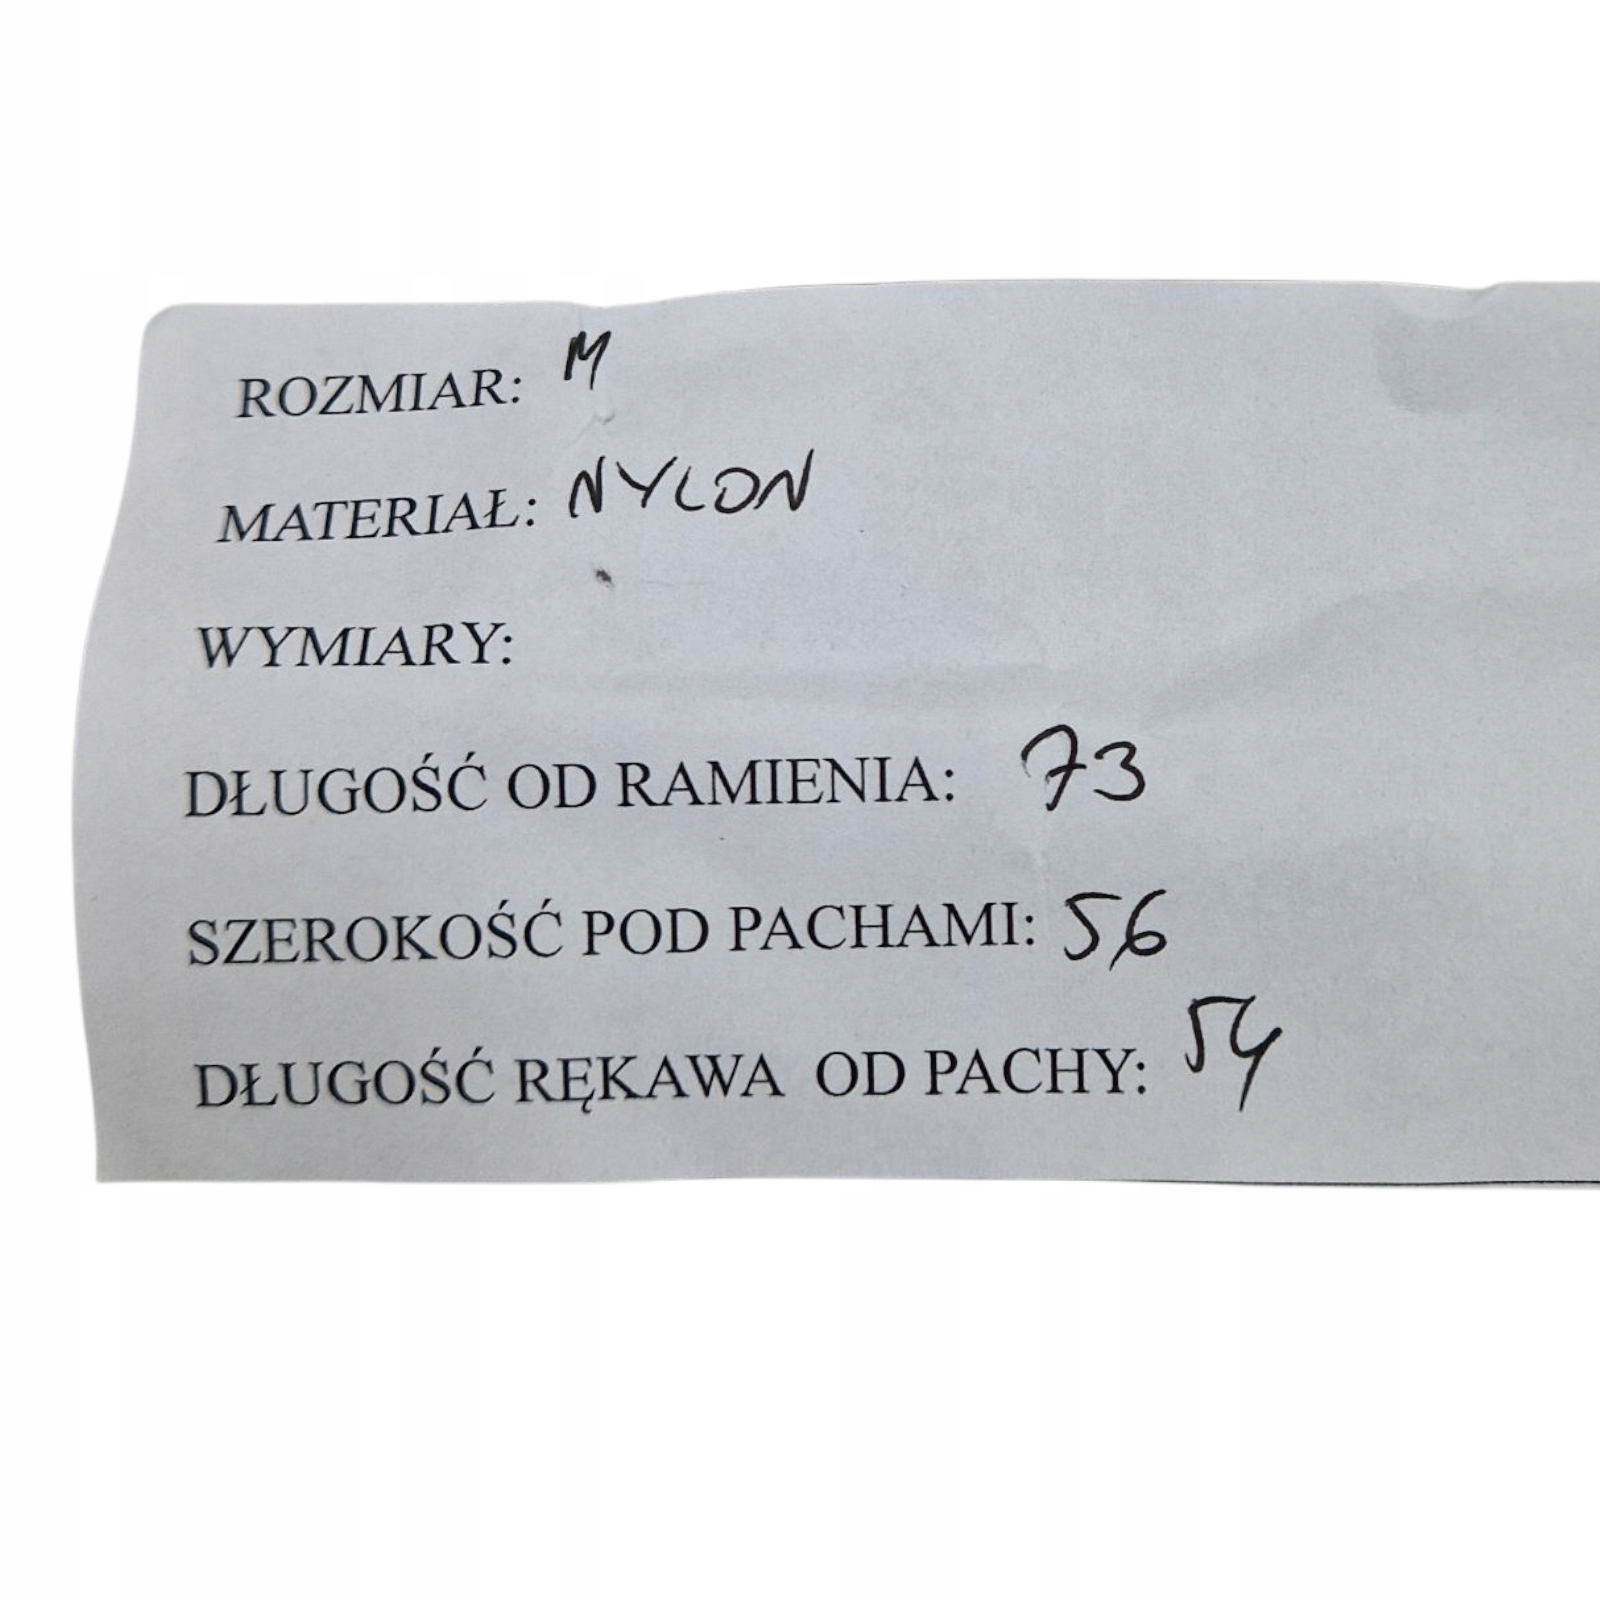 ROZMIAR: M
MATERIAŁ: NYLON
WYMIARY:
DŁUGOŚĆ OD RAMIENIA: 73
SZEROKOŚĆ POD PACHAMI: 56
DŁUGOŚĆ RĘKAWA OD PACHY: 54